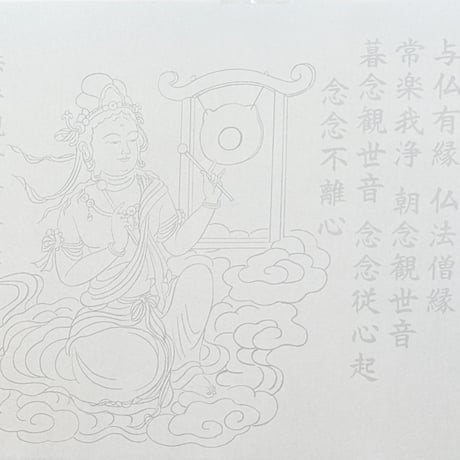 与仏有縁 仏法僧縁
常楽我浄 朝念観世音
暮念観世音 念念従心起
念念不離心